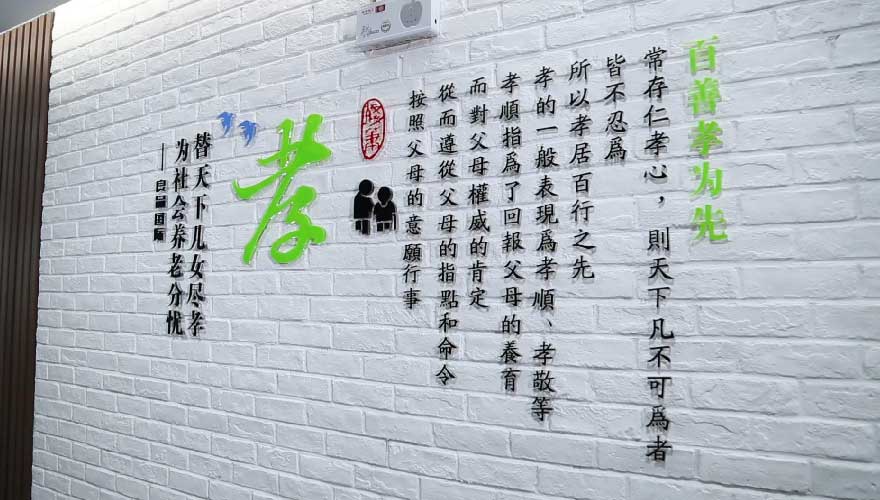 百善孝为先
常存仁孝心，則天下凡不可爲者
皆不忍爲
所以孝居百行之先
孝的一般表現爲孝順、孝敬等
孝順指爲了回報父母的養育
而對父母權威的肯定
從而遵從父母的指點和命令
按照父母的意願行事
孝
替天下儿女尽孝
为社会养老分忧